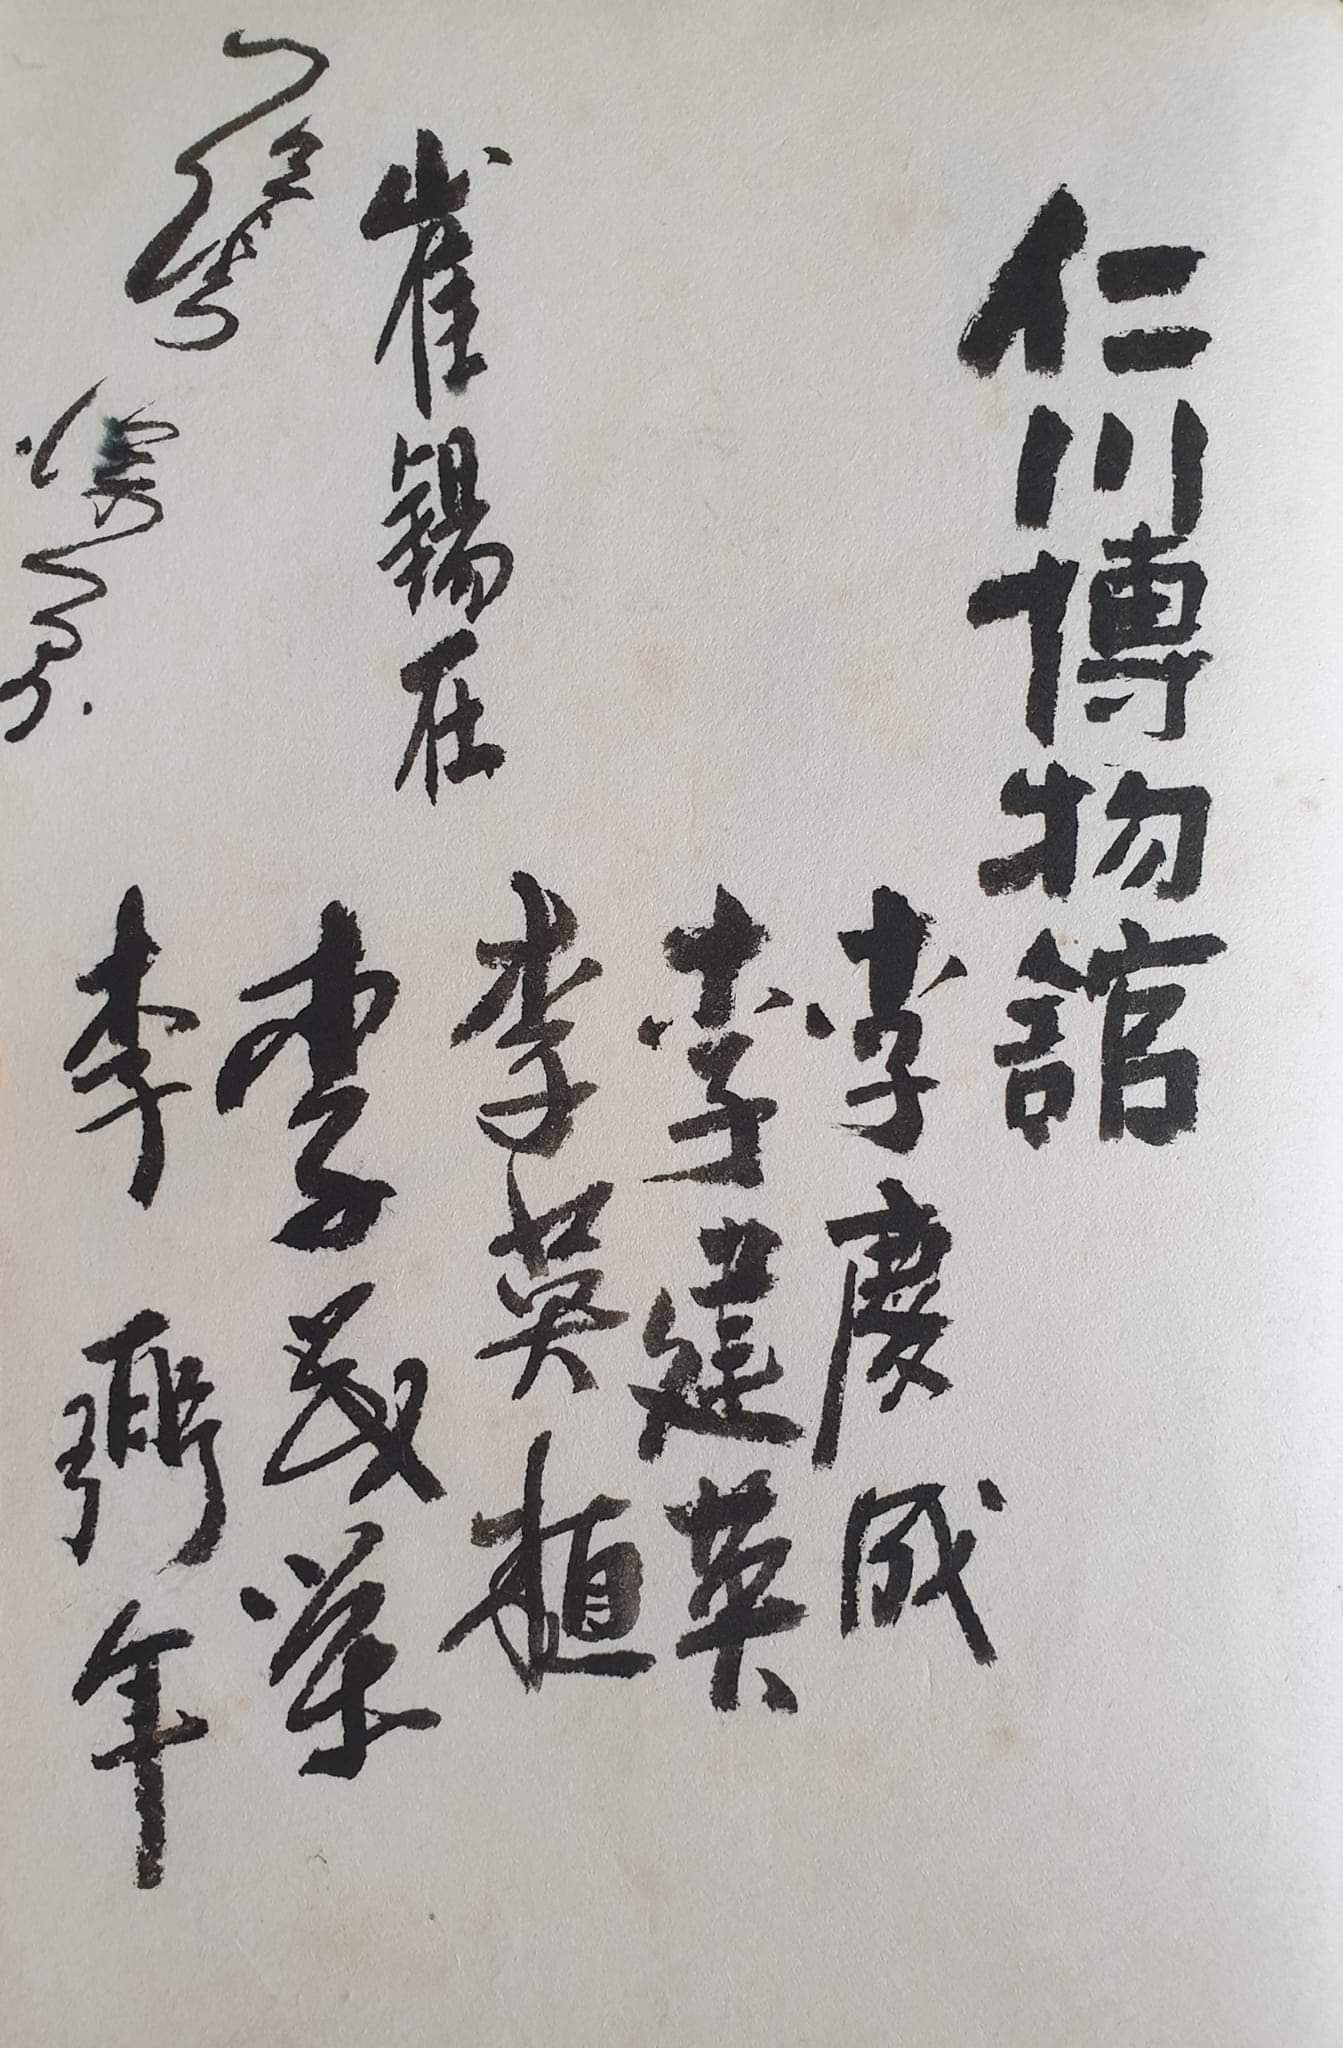 仁川博物館
李慶成
李建英
李英植
崔錫在
李茂榮
李彌年